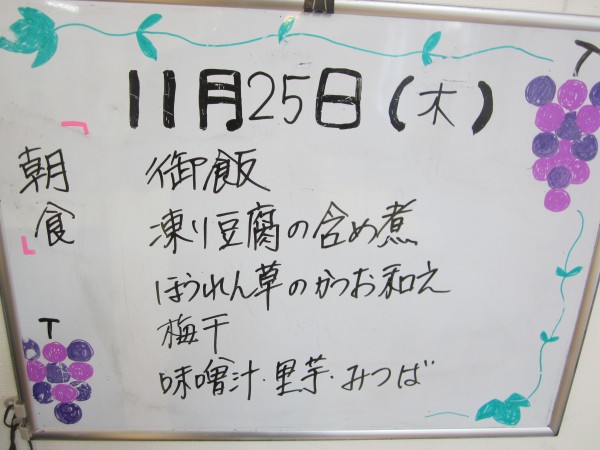 11月25日(木)
「朝食」
御飯
凍り豆腐の含め煮
ほうれん草のかつお和え
梅干
味噌汁・里芋・みつば